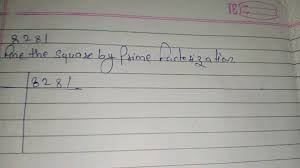 8281
fine the square by Prime factorization
8281